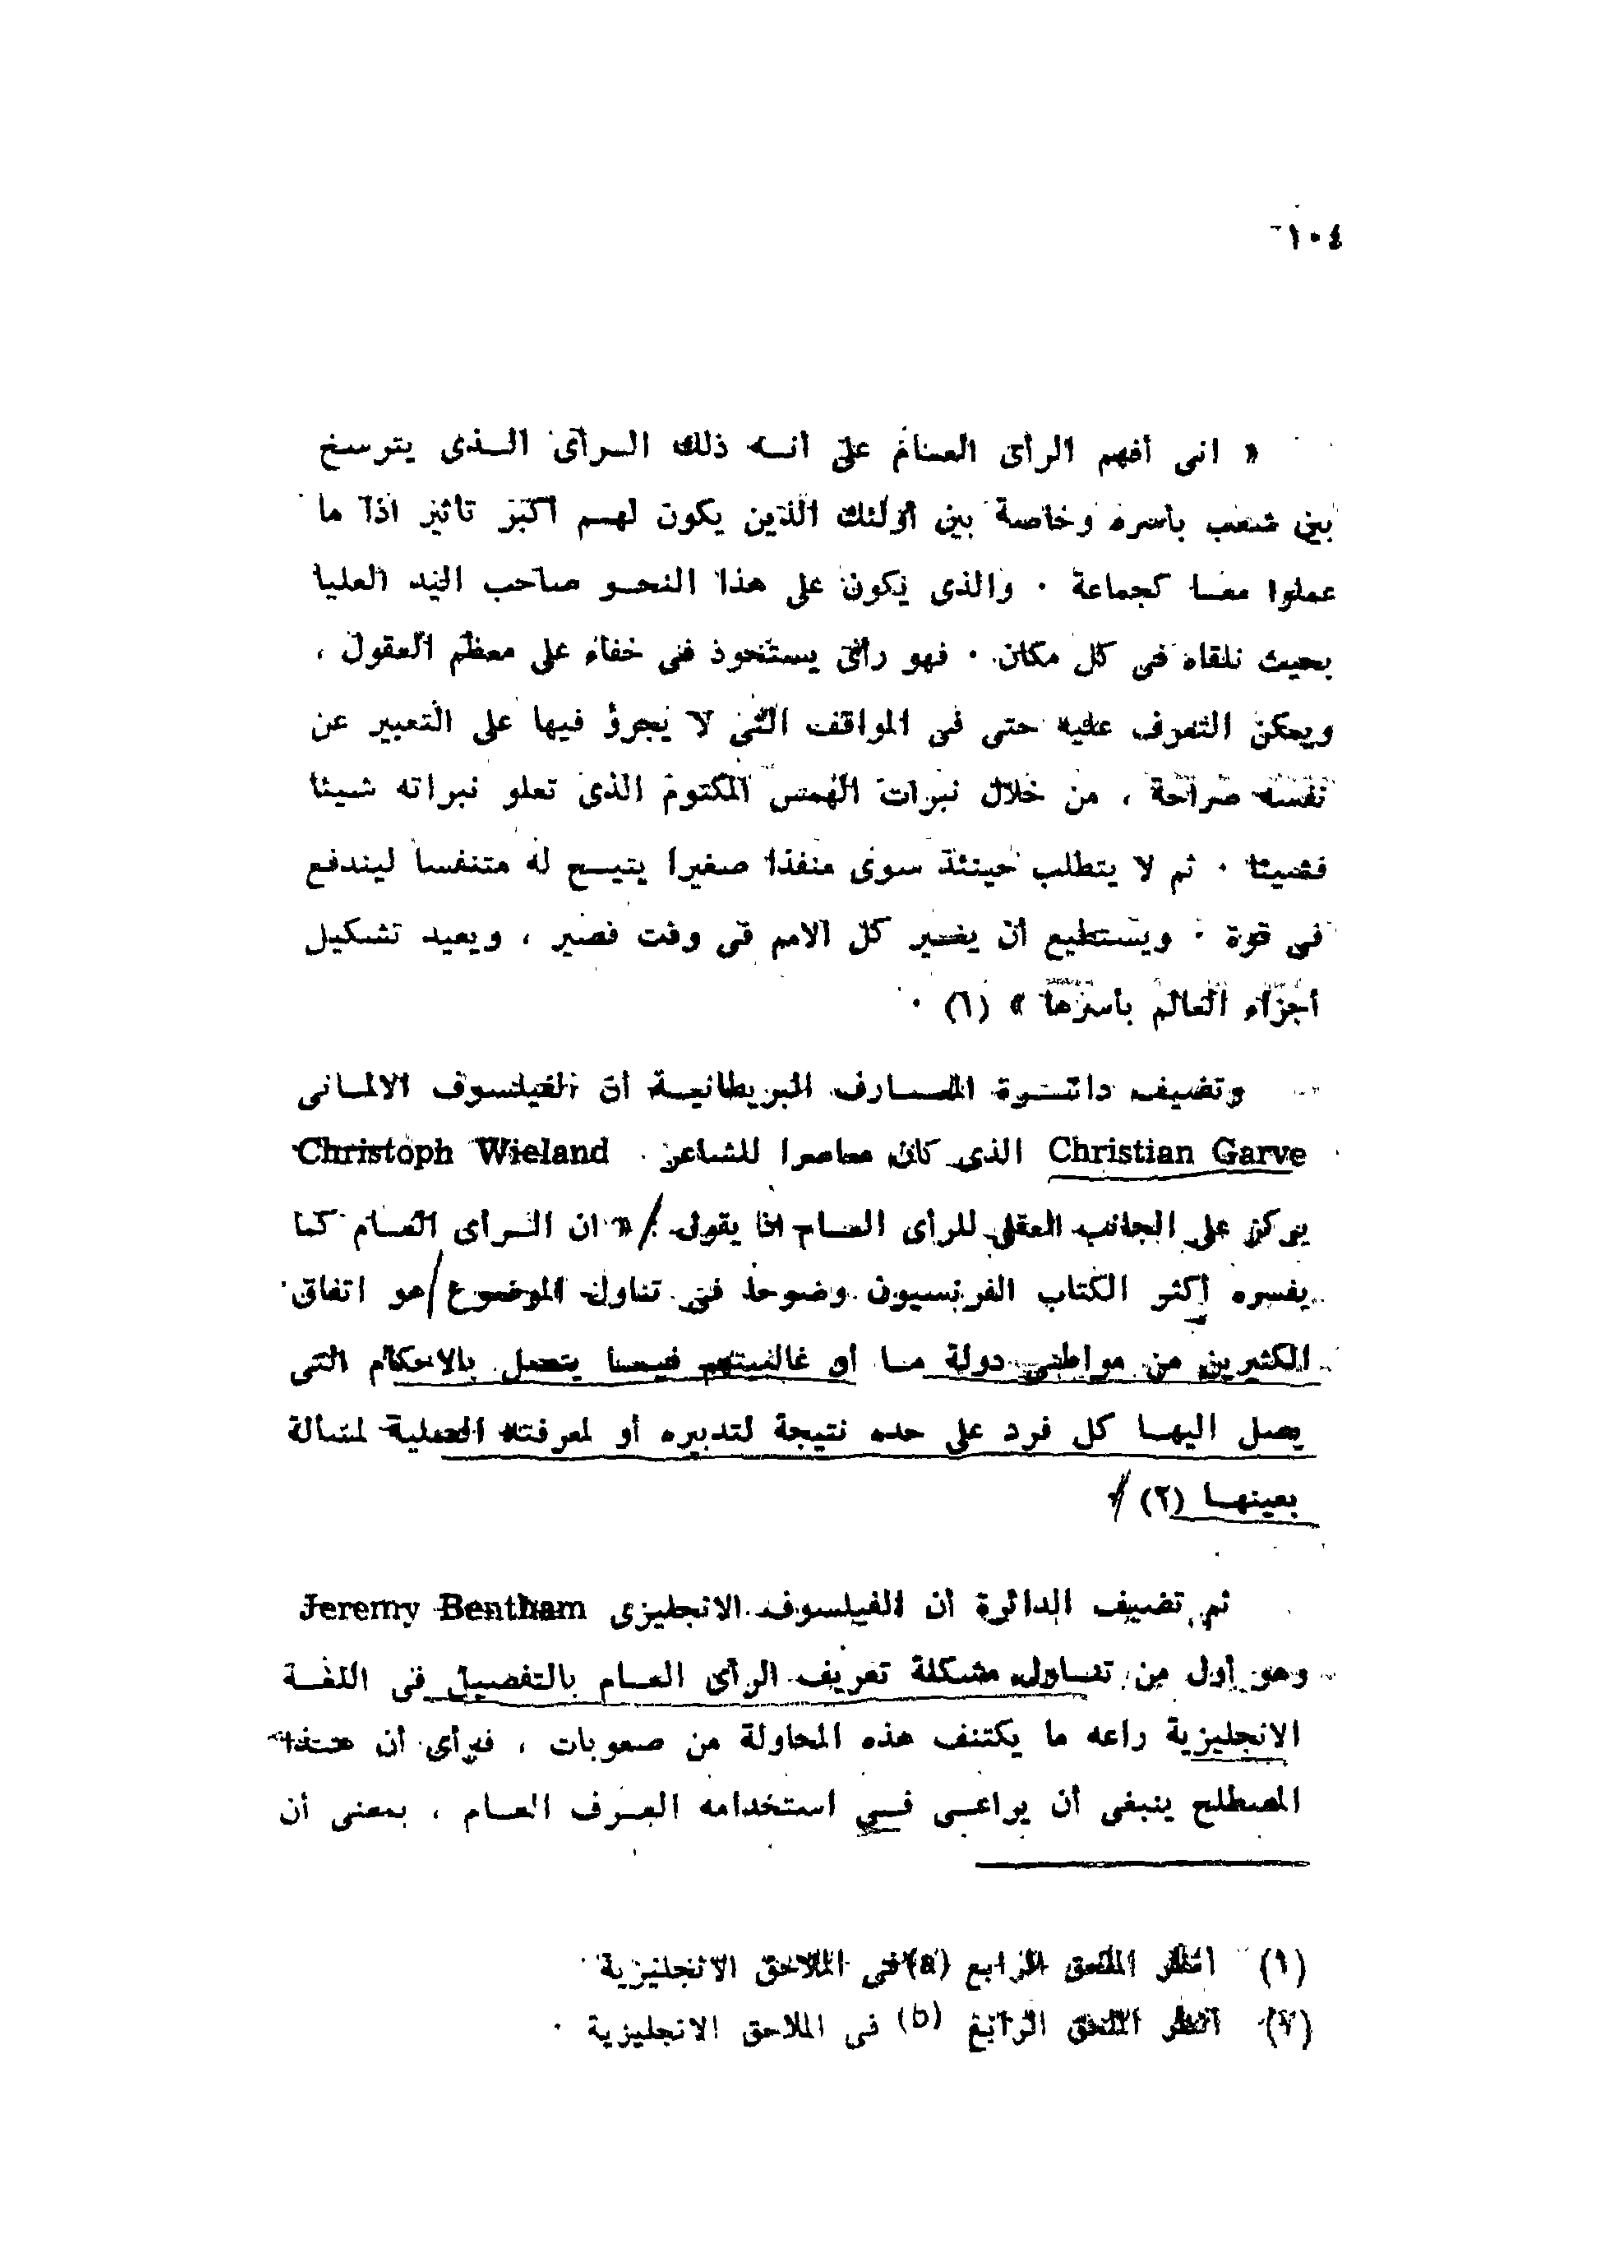 ١٠٤
« انى أفهم الرأى العام على أنه ذلك الرأى الذى يترسخ
بين شعب بأسره وخاصة بين أولئك الذين يكون لهم أكبر تأثير اذا ما
عملوا معا كجماعة . والذى يكون على هذا النحو صاحب اليد العليا
بحيث نلقاه فى كل مكان . فهو رأى يستحوذ فى خفاء على معظم العقول ،
ويمكن التعرف عليه حتى فى المواقف التى لا يجرؤ فيها على التعبير عن
نفسه صراحة ، من خلال نبرات الهمس المكتوم الذى تعلو نبراته شيئا
فشيئا . ثم لا يتطلب حينئذ سوى منفذا صغيرا يتيح له متنفسا ليندفع
فى قوة . ويستطيع أن يغير كل الامم فى وقت قصير ، ويعيد تشكيل
أجزاء العالم بأسرها » (١) .
وتضيف دائرة المعارف البريطانية أن الفيلسوف الالمانى
Christian Garve الذى كان معاصرا للشاعر Christoph Wieland
يركز على الجانب العقلى للرأى العام اذ يقول : « ان الرأى العام كما
يفسره أكثر الكتاب الفرنسيون وضوحا فى تناول الموضوع هو اتفاق
الكثيرين من مواطنى دولة ما أو غالبيتهم فيما يتصل بالاحكام التى
يصل اليها كل فرد على حده نتيجة لتدبيره أو لمعرفته العملية لمسالة
بعينها (٢)
ثم تضيف الدائرة أن الفيلسوف الانجليزى Jeremy Bentham
وهو أول من تناول مشكلة تعريف الرأى العام بالتفصيل فى اللغة
الانجليزية راعه ما يكتنف هذه المحاولة من صعوبات ، فرأى أن هذا
المصطلح ينبغى أن يراعى فى استخدامه العرف العام ، بمعنى أن
(١) انظر الملحق الرابع (a) فى الملاحق الانجليزية .
(٢) انظر الملحق الرابع (b) فى الملاحق الانجليزية .